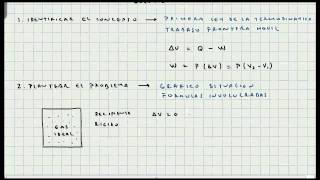 1. IDENTIFICAR EL CONCEPTO → PRIMERA LEY DE LA TERMODINAMICA
TRABAJO FRONTERA MOVIL
ΔU = Q - W
W = P(ΔV) = P(V₂-V₁)
2. PLANTEAR EL PROBLEMA → GRAFICO SITUACION
FORMULAS INVOLUCRADAS
GAS IDEAL
RECIPIENTE RIGIDO